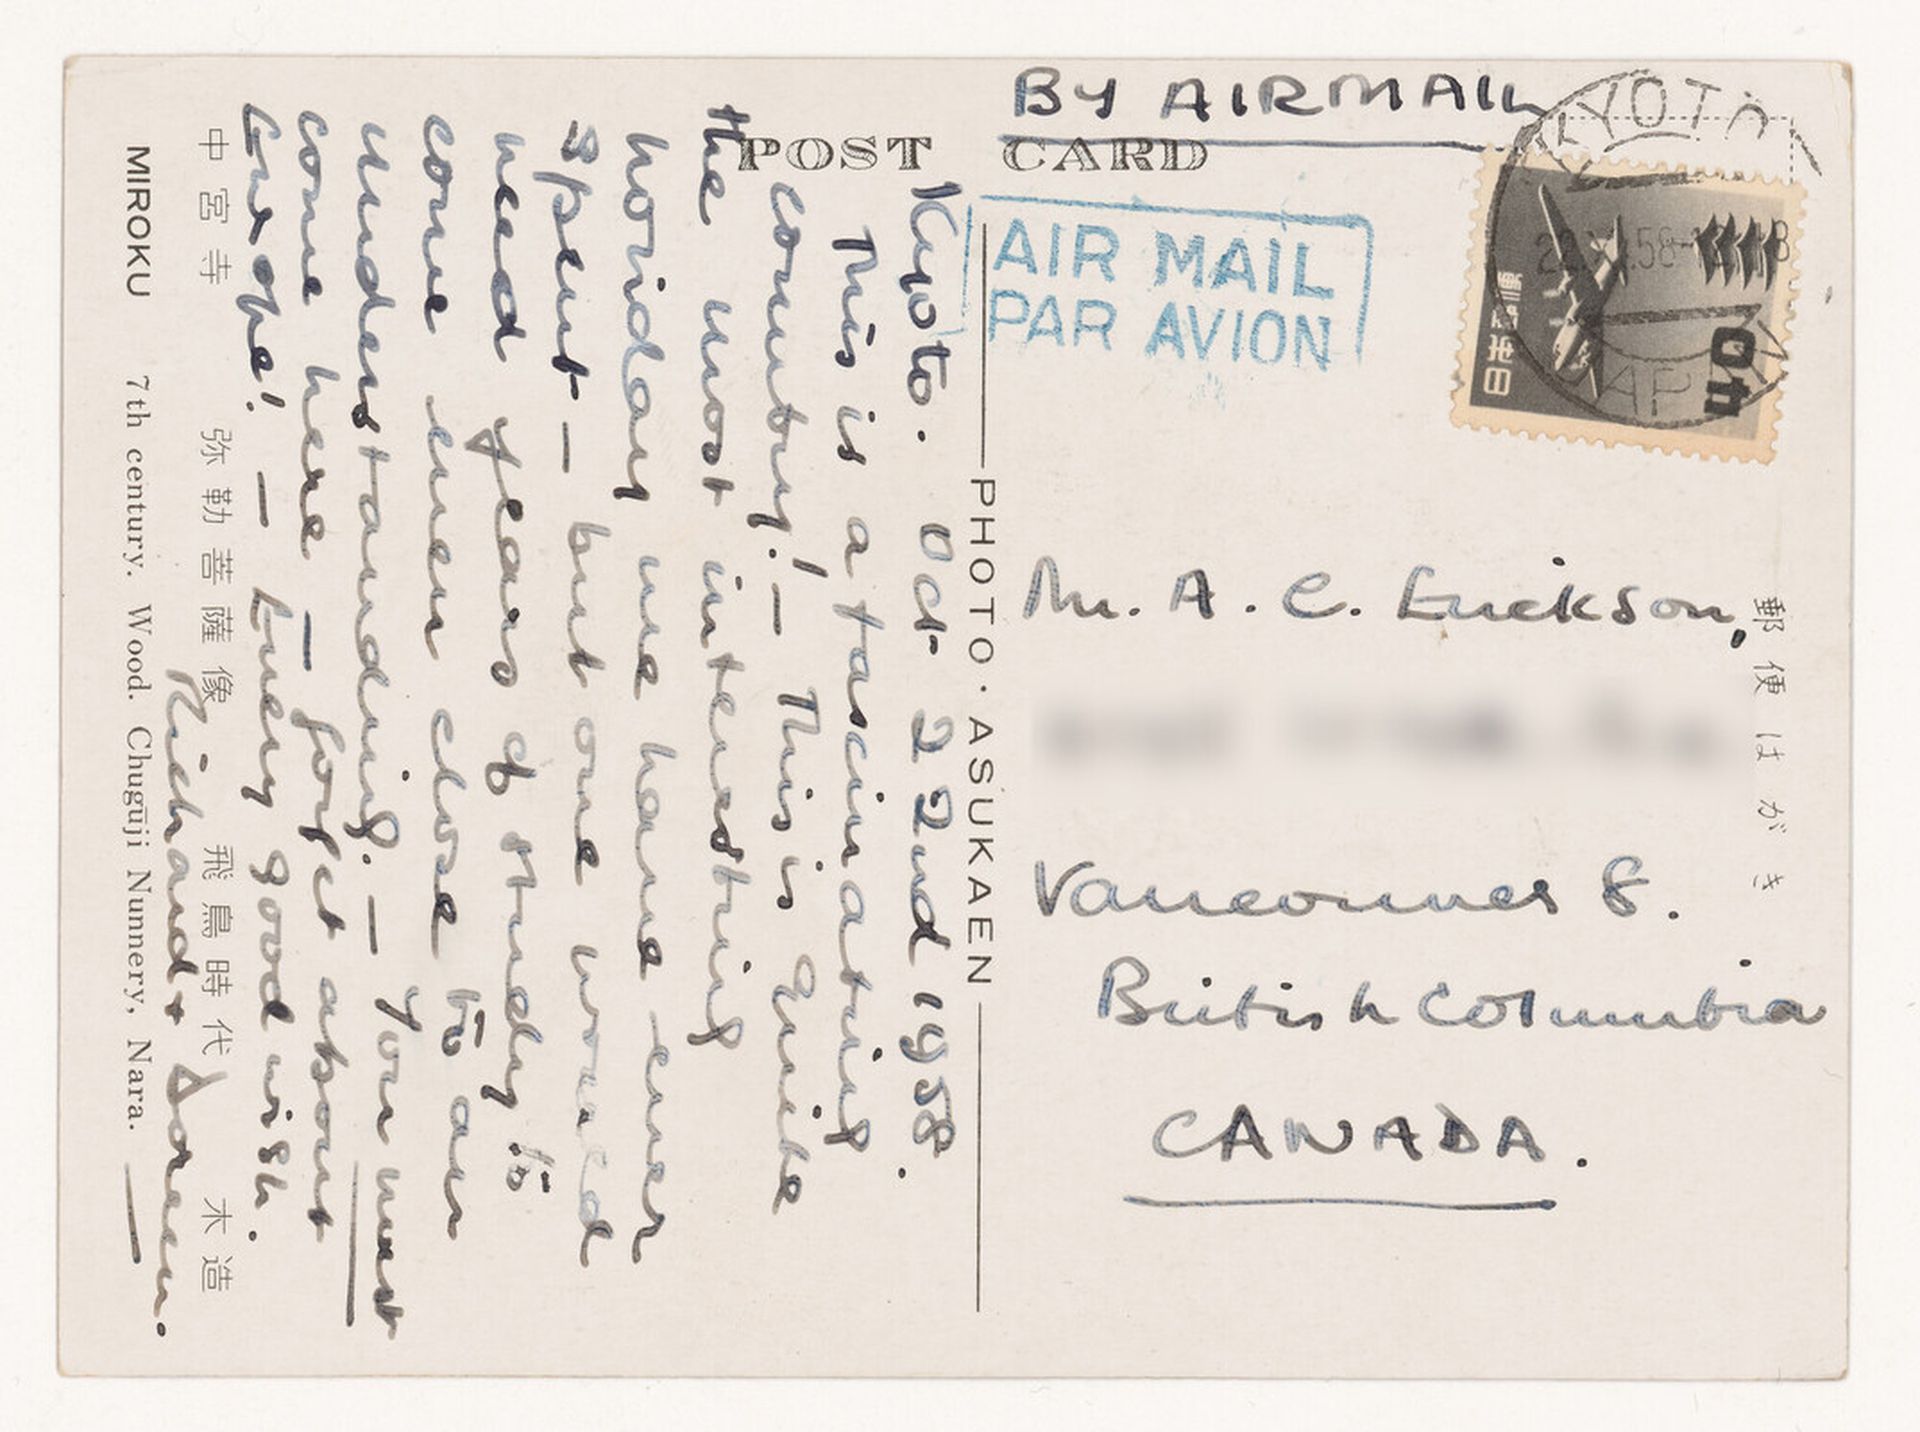 BY AIRMAIL
POST CARD
AIR MAIL
PAR AVION
KYOTO
日本郵便
40
PHOTO・ASUKAEN
郵便はがき
Mr. A. C. Erickson,
Vancouver 8.
British Columbia
CANADA.
Kyoto. Oct 22nd 1958.
This is a fascinating
country! — This is quite
the most interesting
holiday we have ever
spent — but one would
need years of study to
come even close to an
understanding. — You must
come here — forget about
Europe! — Every good wish.
Richard + Doreen.
中宮寺 弥勒菩薩像 飛鳥時代 木造
MIROKU 7th century. Wood. Chugūji Nunnery, Nara.